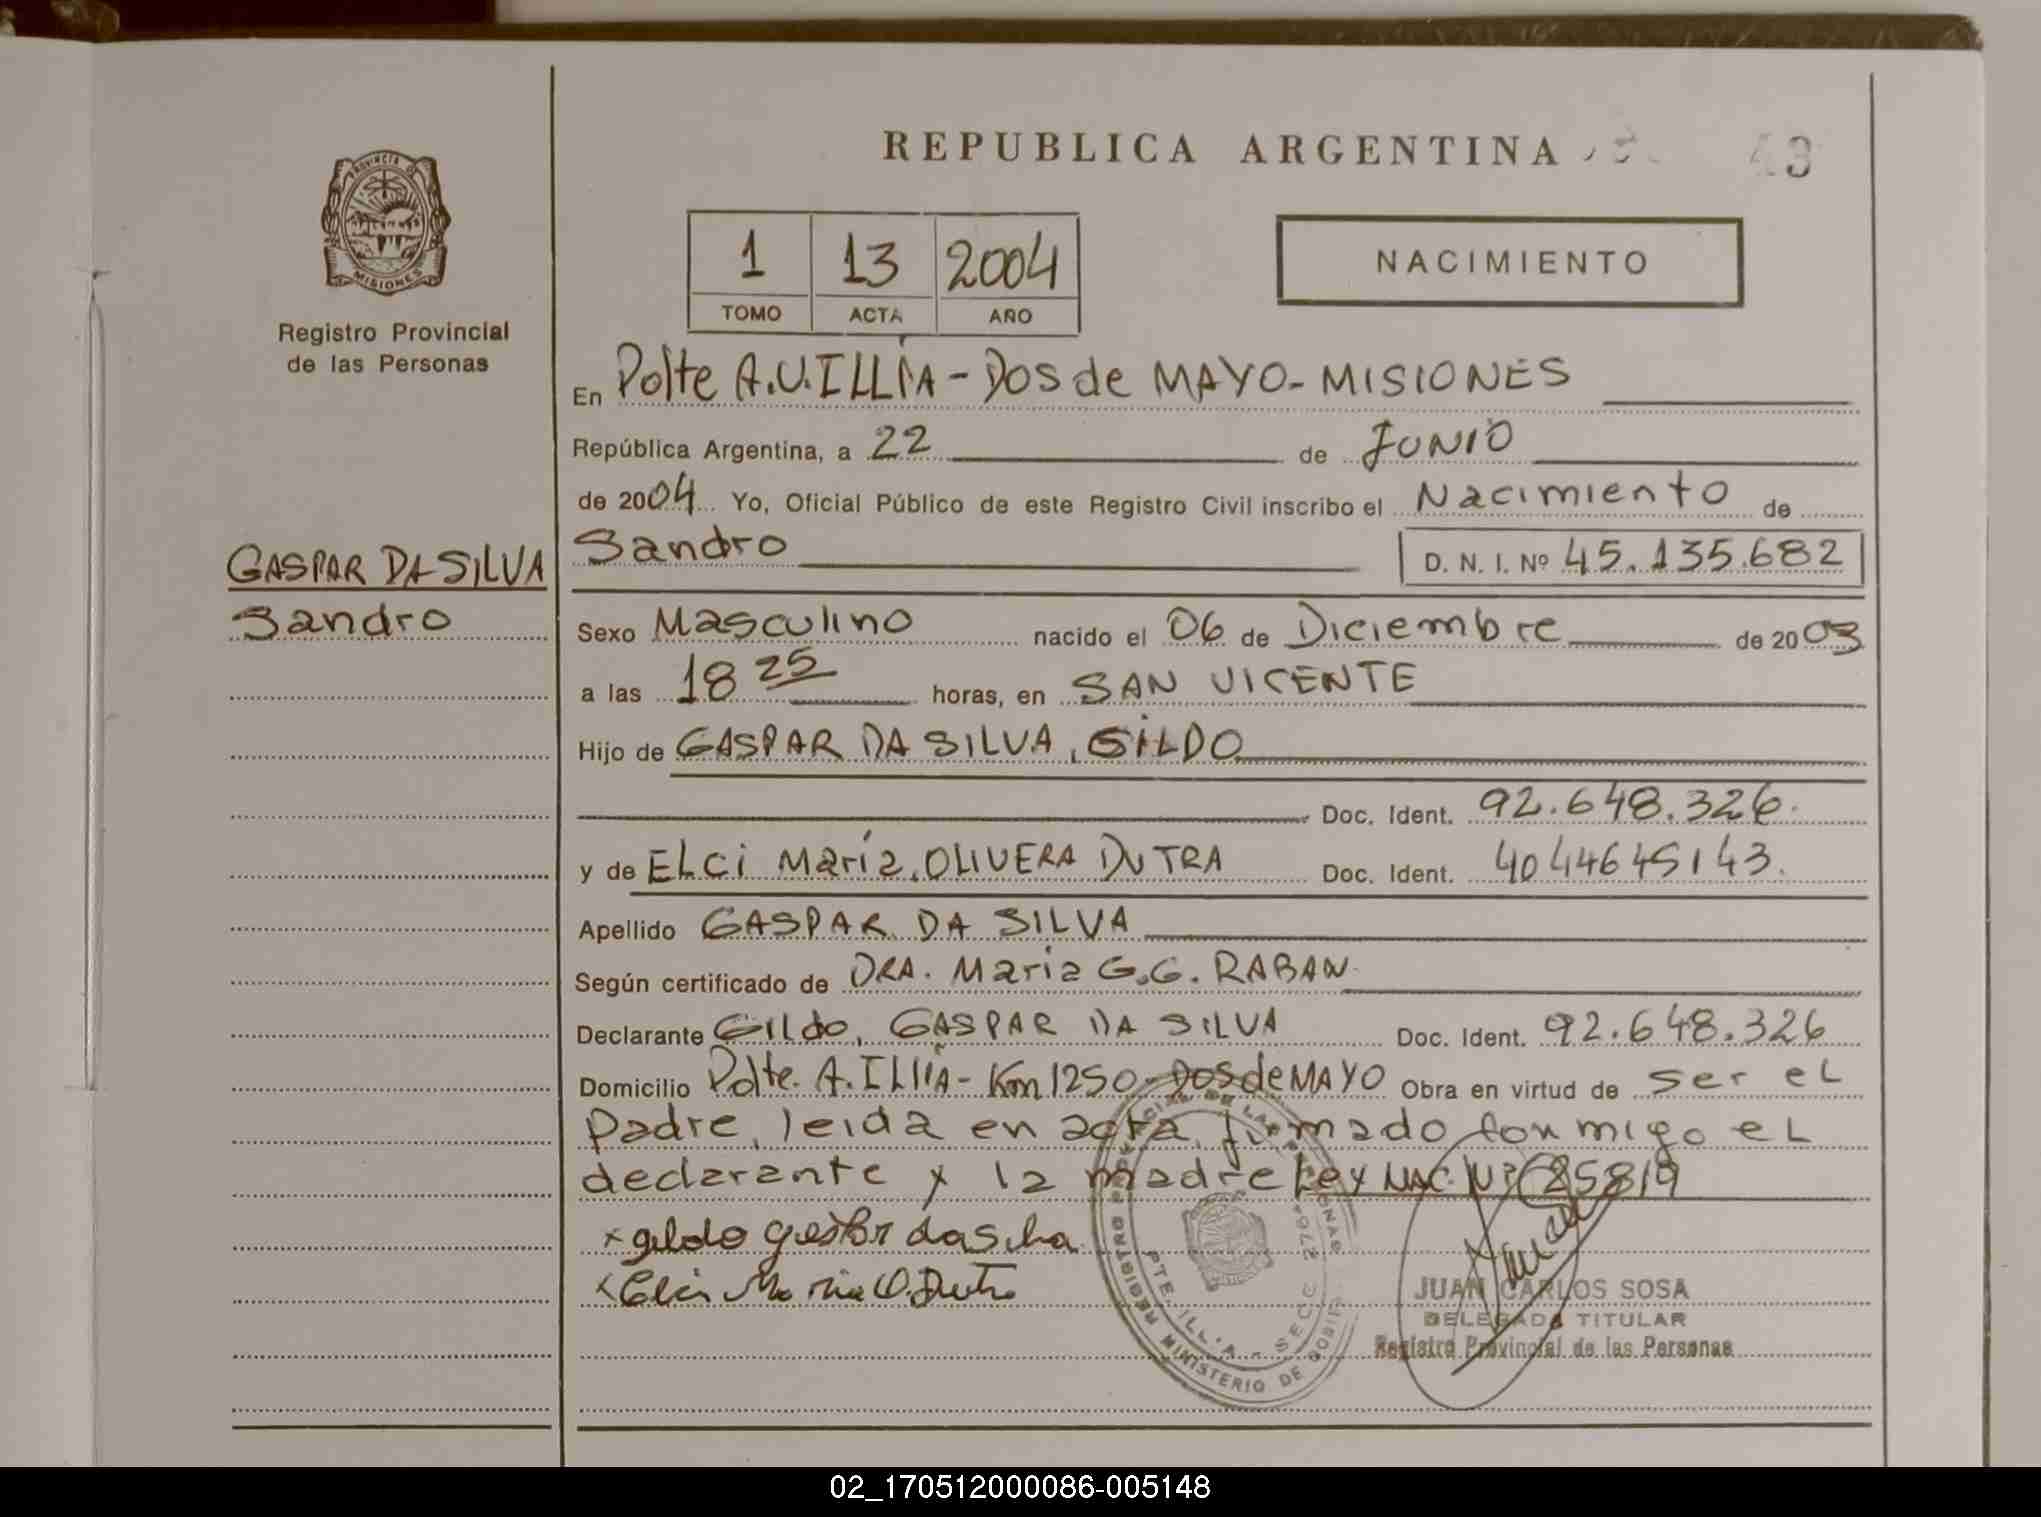 REPUBLICA ARGENTINA
43
PROVINCIA DE
MISIONES
Registro Provincial
de las Personas
1 13 2004
TOMO ACTA AÑO
NACIMIENTO
En Pdte A.U.ILLÍA - DOS de MAYO - MISIONES
República Argentina, a 22 de JUNIO
de 2004 Yo, Oficial Público de este Registro Civil inscribo el Nacimiento de
GASPAR DA SILVA
Sandro
Sandro D. N. I. Nº 45.135.682
Sexo Masculino nacido el 06 de Diciembre de 2003
a las 18 25 horas, en SAN VICENTE
Hijo de GASPAR DA SILVA, GILDO
Doc. Ident. 92.648.326.
y de ELCI María, OLIVERA DUTRA Doc. Ident. 4044645143.
Apellido GASPAR DA SILVA
Según certificado de DRA. María G.G. RABAN
Declarante GILdo, GASPAR DA SILVA Doc. Ident. 92.648.326
Domicilio Pdte. A. ILLIA - Km 1250 - DOS de MAYO Obra en virtud de ser el
Padre, leida en acta, firmado conmigo el
declarante y la madre Ley NAC. Nº 25819
x gildo gaspar dasilva
x Elci Maria O. Dutra
REGISTRO PROVINCIAL DE LAS PERSONAS
MINISTERIO DE GOBIER
PTE. ILLIA - SECC 2764
JUAN CARLOS SOSA
DELEGADO TITULAR
Registro Provincial de las Personas
02_170512000086-005148